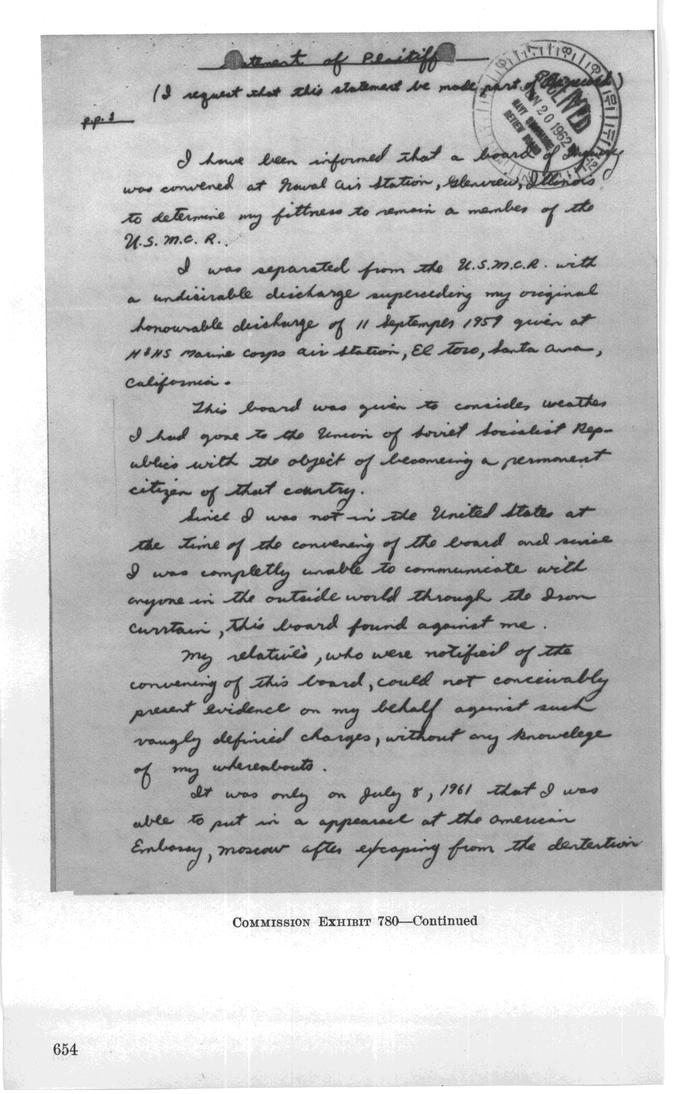 Statement of Plaitiff
(I request that this statement be made part of the record)
p.p. 3
RECEIVED
20 1962
NAVY DISCHARGE
REVIEW BOARD
I have been informed that a board of Inquiry
was convened at Naval Air Station, Glenview, Illinois
to determine my fittness to remain a member of the
U.S.M.C.R..
I was separated from the U.S.M.C.R. with
a undisirable discharge superceding my original
honourable discharge of 11 September 1959 given at
H&HS Marine corps air station, El toro, Santa Anna,
California.
This board was given to consider weather
I had gone to the Union of Soviet Socialist Rep-
ublics with the object of becomeing a permanent
citizen of that country.
Since I was not in the United States at
the time of the convening of the board and since
I was completly unable to communicate with
anyone in the outside world through the Iron
currtain, this board found against me.
My relative's, who were notified of the
convening of this board, could not conceivably
present evidence on my behalf against such
vaugly definied charges, without any knowelege
of my whereabouts.
It was only on July 8, 1961 that I was
able to put in a at the American
Embassy, Moscow after escaping from the
COMMISSION EXHIBIT 780—Continued
654